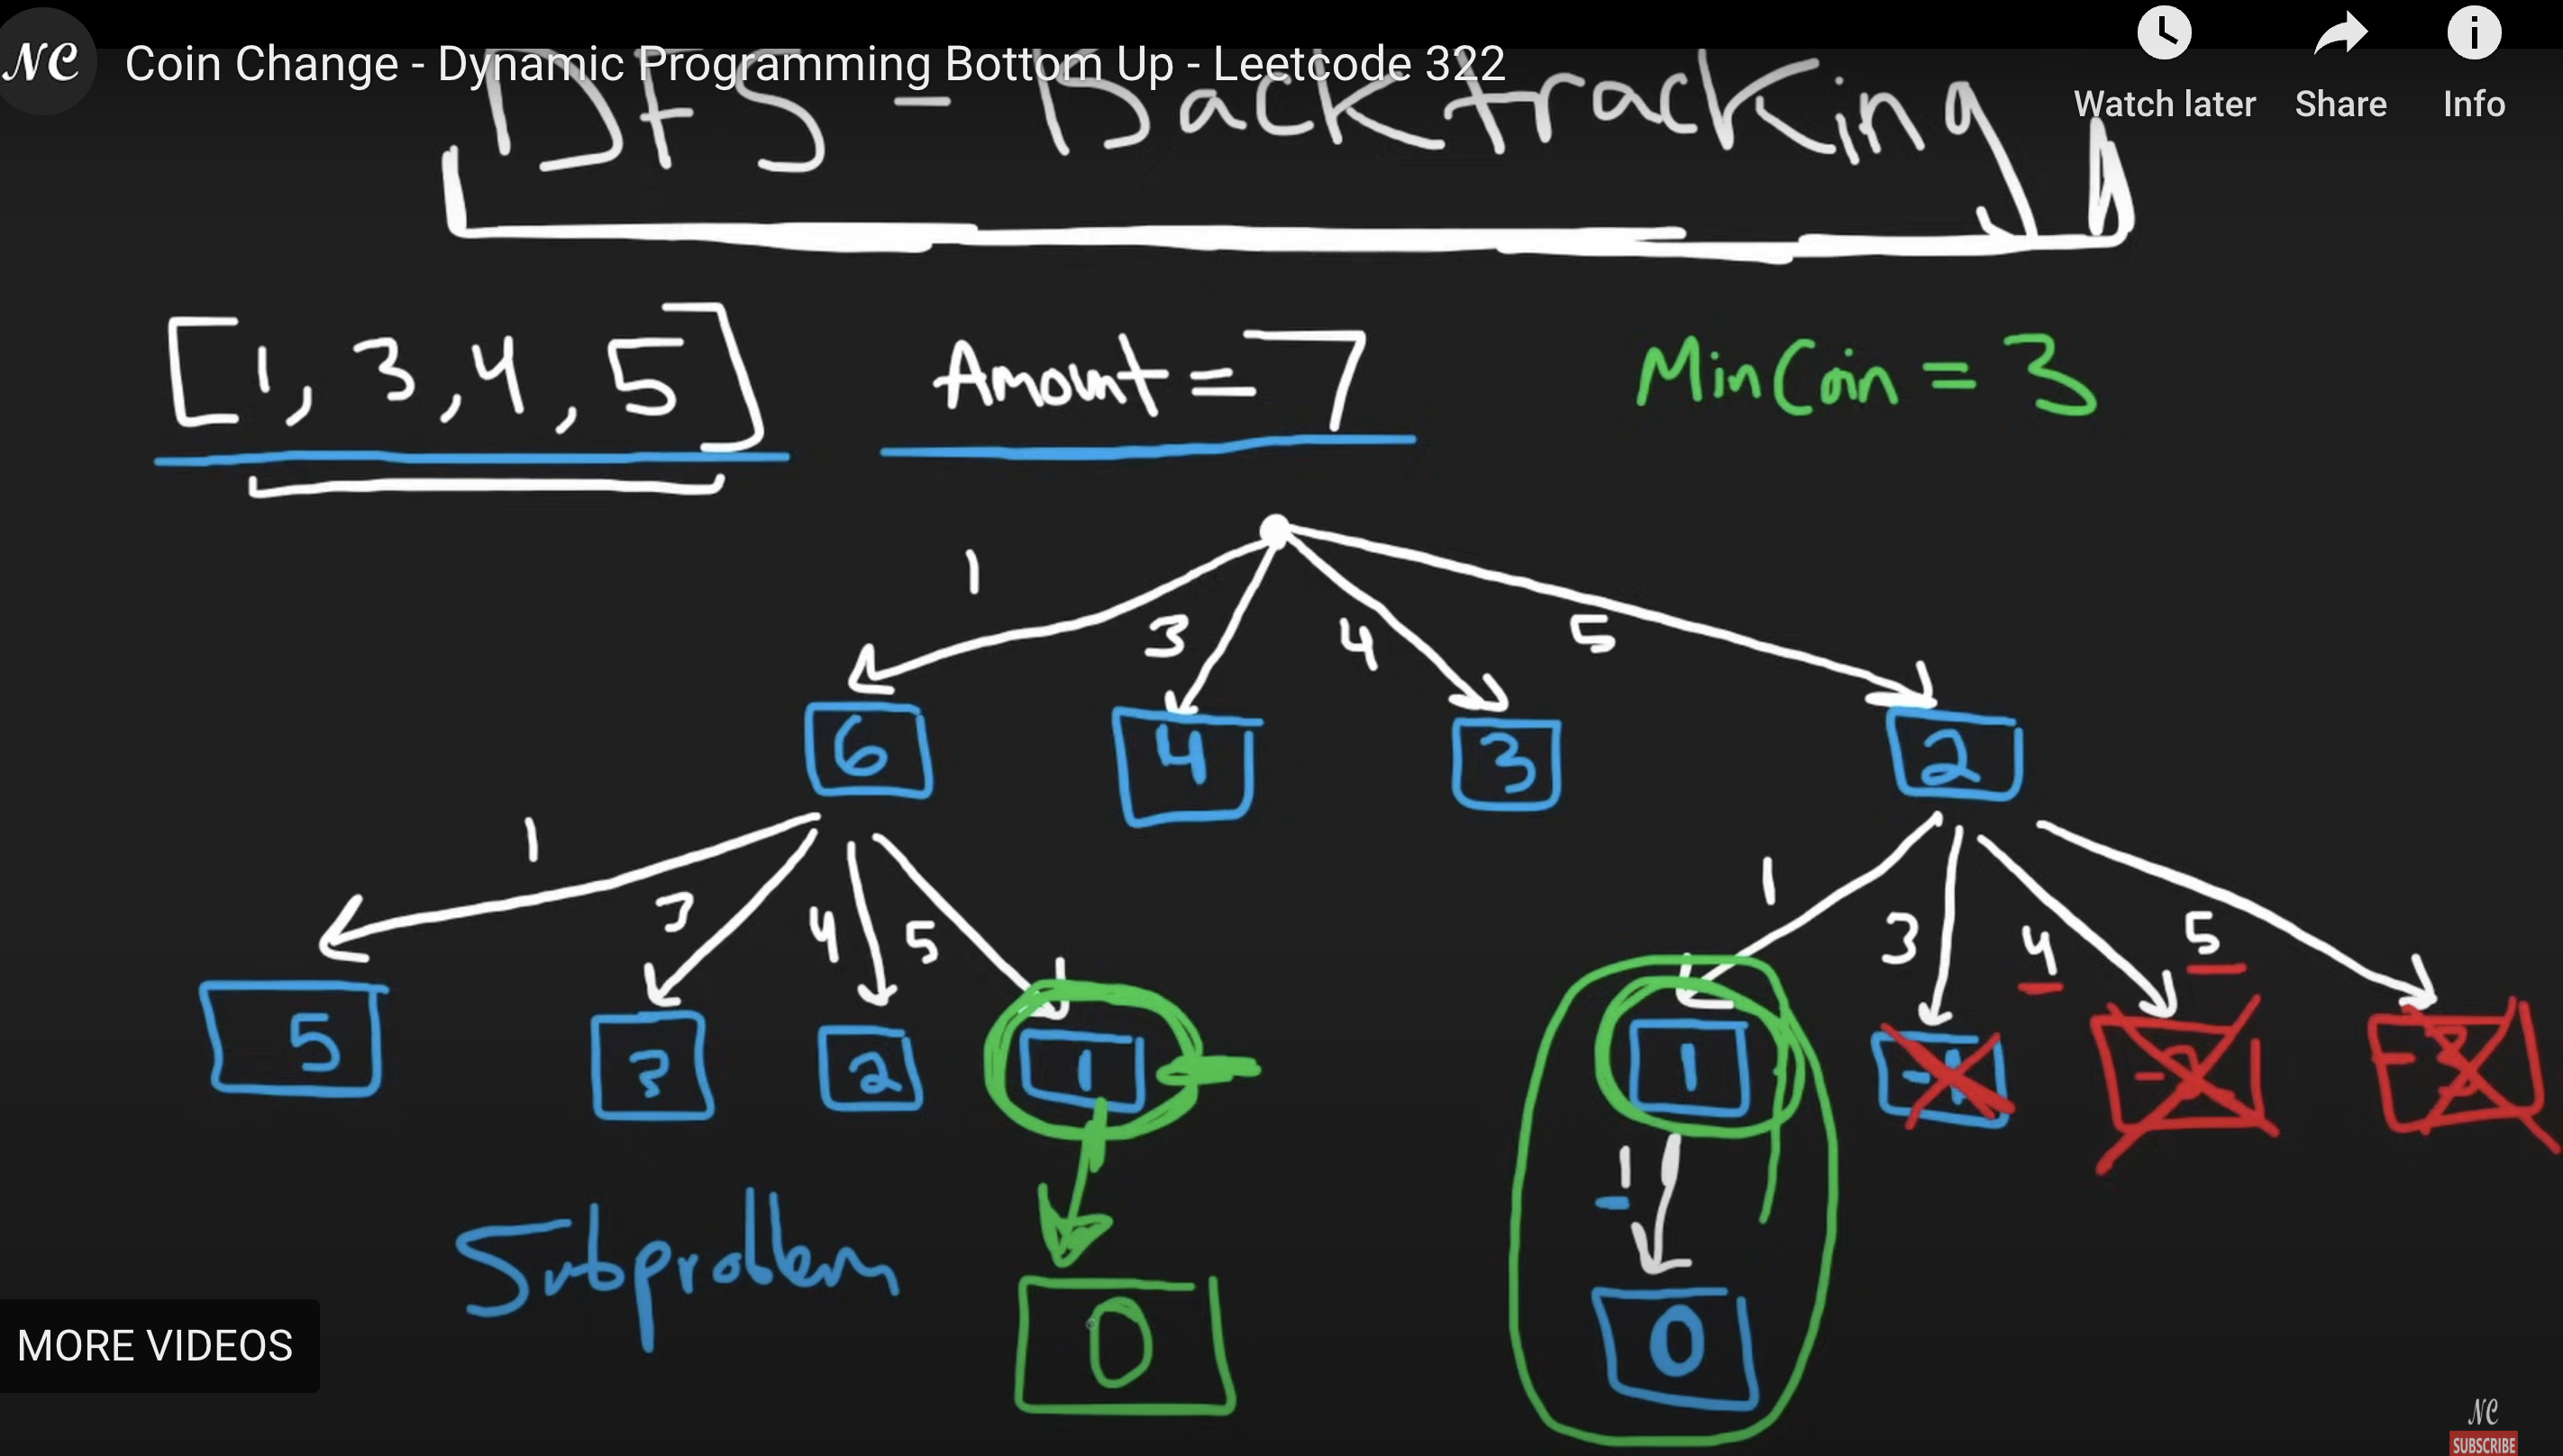 NC Coin Change - Dynamic Programming Bottom Up - Leetcode 322
Watch later Share Info
DFS - Backtracking
[1, 3, 4, 5] Amount = 7 MinCoin = 3
1 3 4 5
6 4 3 2
1 3 4 5 1 3 4 5
5 3 2 1 1 -1 -2 -3
1
Subproblem
0 0
MORE VIDEOS
NC
SUBSCRIBE